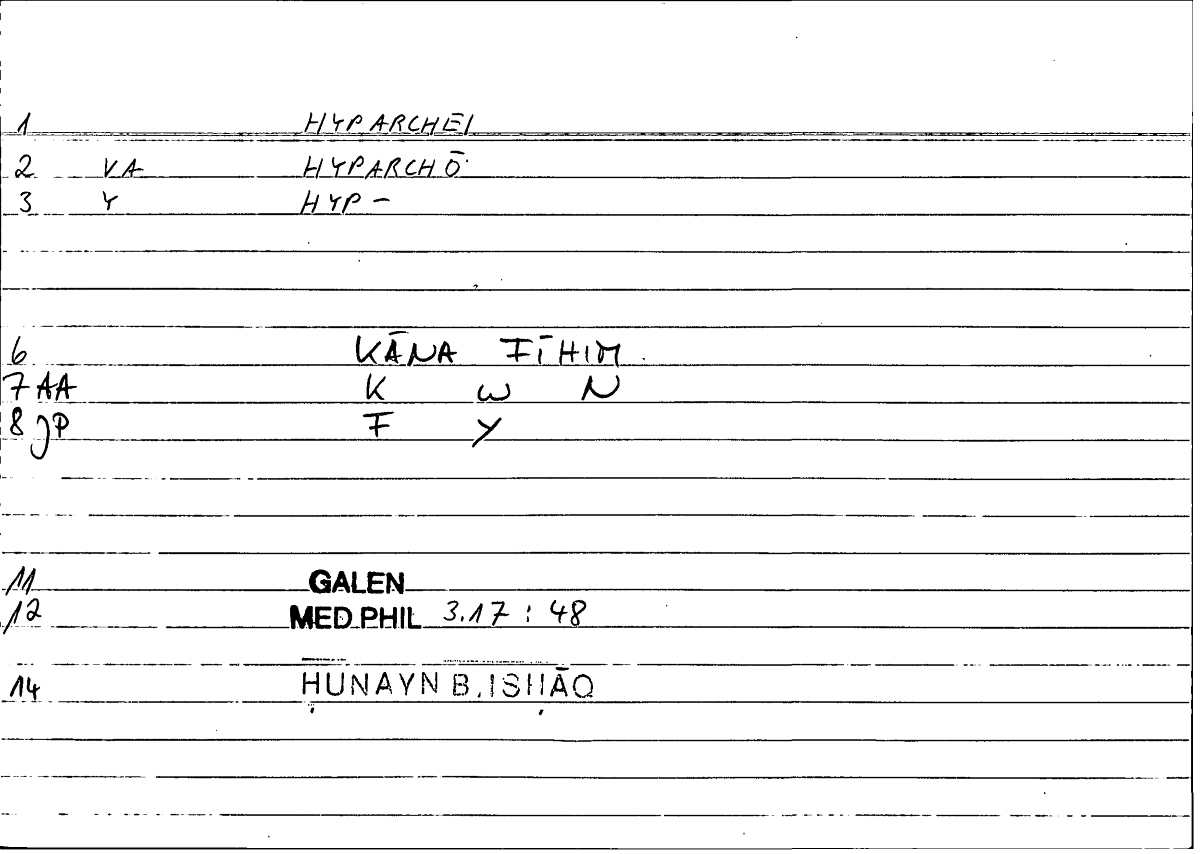 1 HYPARCHEĪ
2 VA HYPARCHŌ
3 Y HYP-
6 KĀNA FĪHIM
7 AA K W N
8 JP F Y
11 GALEN
12 MED PHIL 3.17 : 48
14 ḤUNAYN B. ISḤĀQ